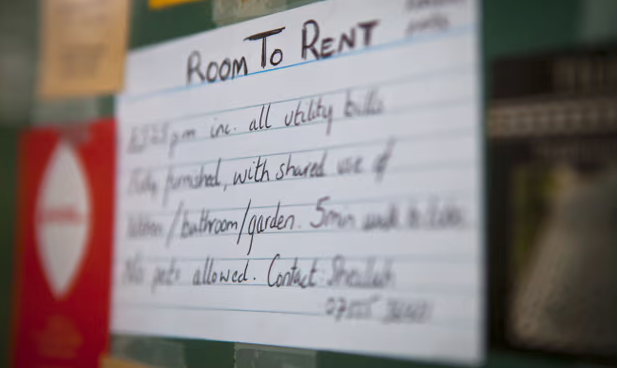 ROOM TO RENT
pm inc. all utility bills
Fully furnished, with shared use of
kitchen/bathroom/garden. 5min walk to
No pets allowed. Contact Sheilah